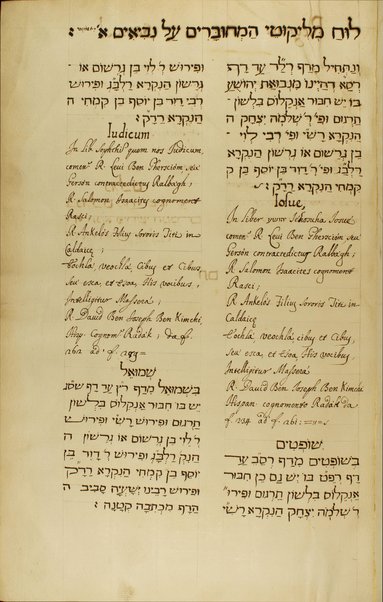 לוח מליקוטי המחוברים על נביאים א'
ונתחיל מדף רל"ד עד דף
רס"א דהיינו מנבואת יהושע
בו יש חבור אנקלוס בלשון
תרגום ופי' ר' שלמה יצחק
הנקרא רש"י ופי' רבי לוי
בן גרשום או גרשון הנקרא
רלב"ג ופי' רבי דוד בן יוסף בן ק
קמחי הנקרא רד"ק :
Iosue,
In Liber yuvr Sehomha Iosue
comen.t R. Levi Ben Gherscion seu
Gersòn contracedictur Ralbagh;
R Salomon Isaacites cognoment
Rasci;
R Ankelòs Filius Sororis Titi in
Caldaice
Eochla veochla cibus et Cibus,
seu esca, et Esca His vocibus,
Intelligitur Massorà
R. David Ben Ioseph Ben Kimchi
Hispan. cognomento Radàk da
f. 234 ad f. 261:
שופטים
בשופטים מדף רסב עד
דף רפט בו יש גם כן חבור
אנקלוס בלשון תרגום ופירו'
ר' שלמה יצחק הנקרא רש"י
ופירוש ר' לוי בן גרשום או
גרשון הנקרא רלב"ג ופירוש
רבי דוד בן יוסף בן קמחי ה
הנקרא רד"ק
Iudicum
In Lib. Sophetìs quem nos Iudicum,
comen.t R. Levi Ben Gherscion seu
Gersòn contracedictus Ralbagh;
R Salomon Isaacitus cognoment
Rasci;
R Ankelòs Filius Sororis Titi in
Caldaice;
Eochla, veochla, Cibus et Cibus,
seu esca, et Esca, His vocibus,
Intelligitur Massora;
R David Ben Ioseph Ben Kimchi,
Hisp. Cognom.to Radàk; da ff.
262 ad f. 289=
שמואל
בשמואל מדף רץ עד דף
יש בו חבור אנקלוס בלשון
תרגום ופירוש רש"י ופירוש
ר' לוי בן גרשום או גרשון ה
הנק' רלב"ג ופירוש ר' דוד בן
יוסף בן קמחי הנקרא רד"ק
ופירוש רבינו ישעיה סביב ה
הדף מכתבה קטנה :